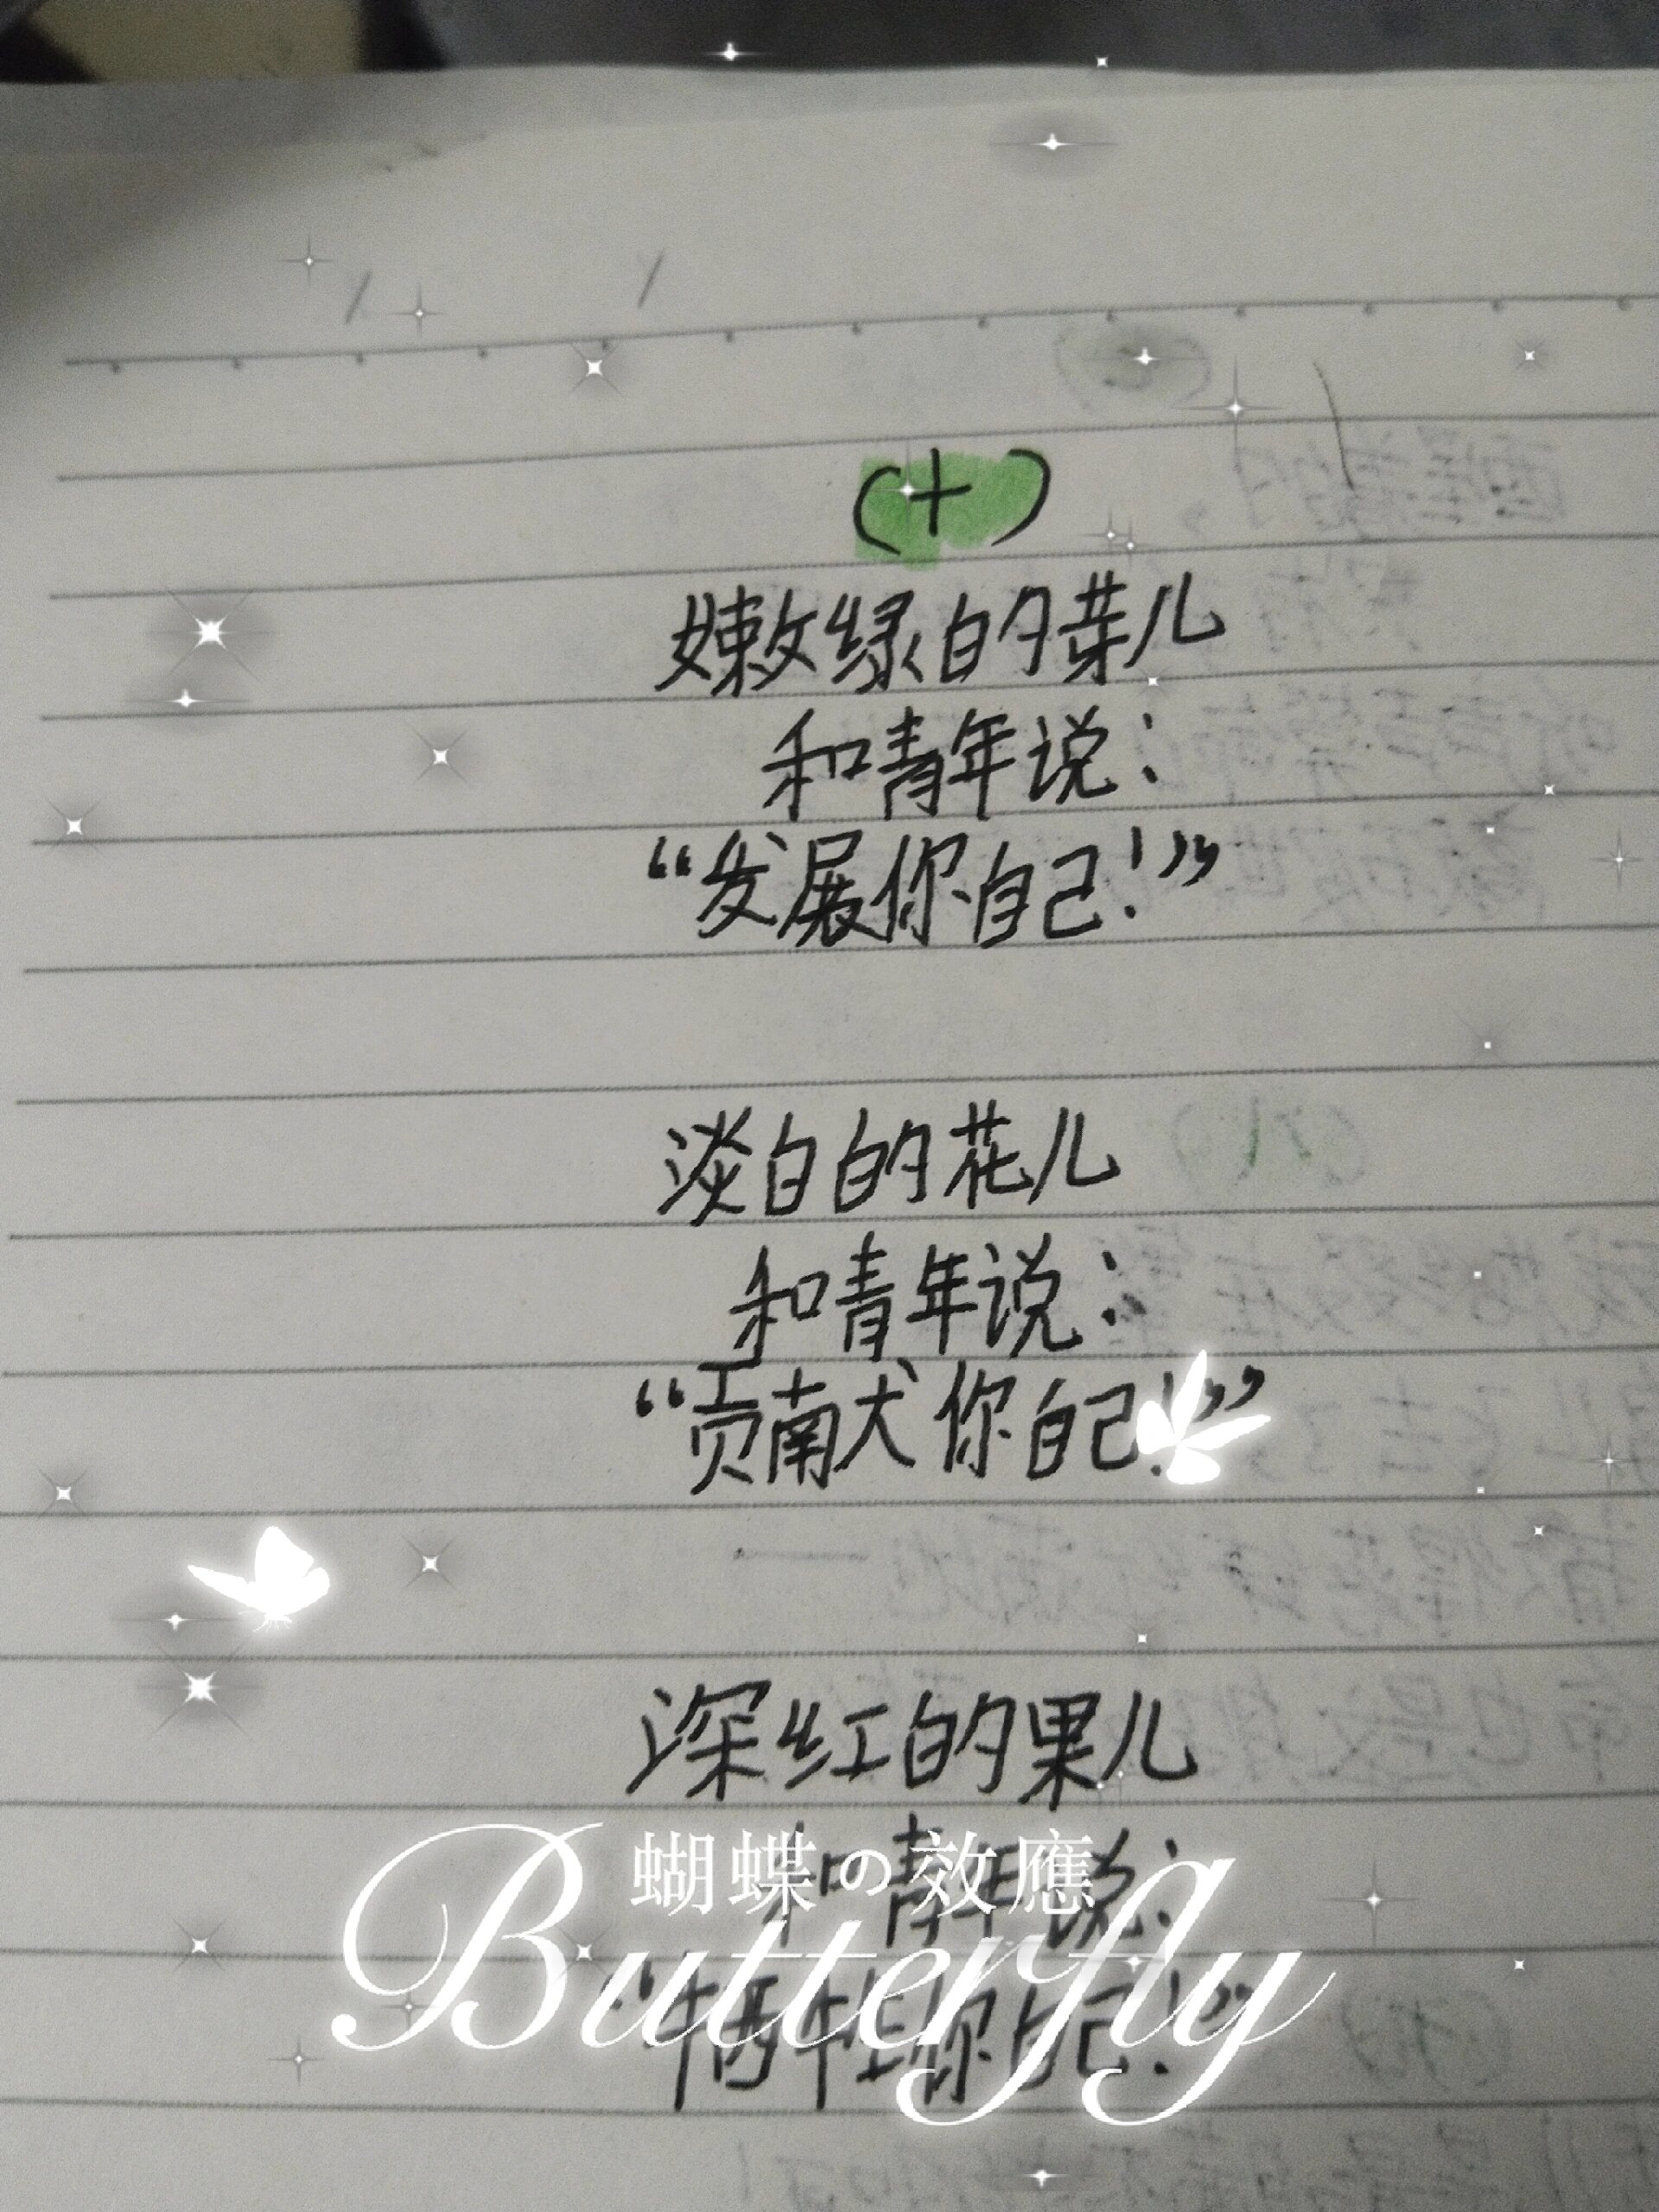 (十)
嫩绿的芽儿
和青年说：
“发展你自己！”
淡白的花儿
和青年说：
“贡献你自己！”
深红的果儿
和青年说：
蝴蝶の效應
Butterfly
“牺牲你自己！”